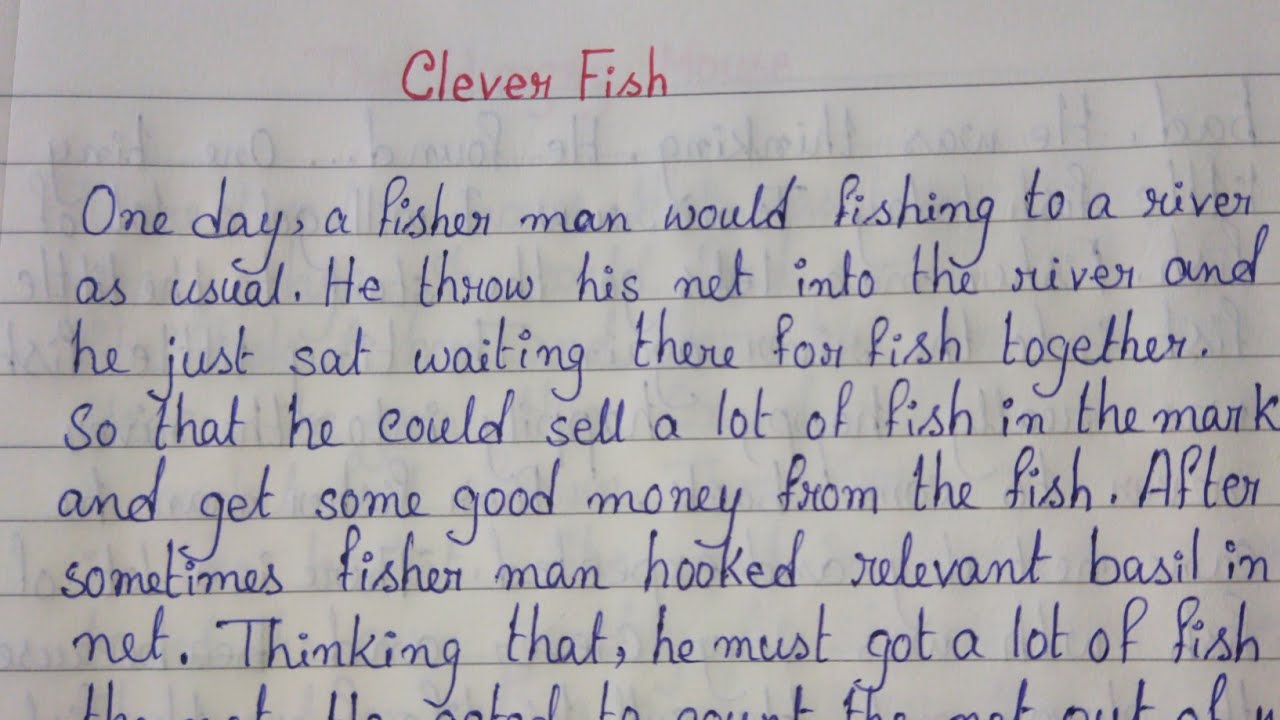 Clever Fish
One day, a fisher man would fishing to a river
as usual. He throw his net into the river and
he just sat waiting there for fish together.
So that he could sell a lot of fish in the mark
and get some good money from the fish. After
sometimes fisher man hooked relevant basil in
net. Thinking that, he must got a lot of fish